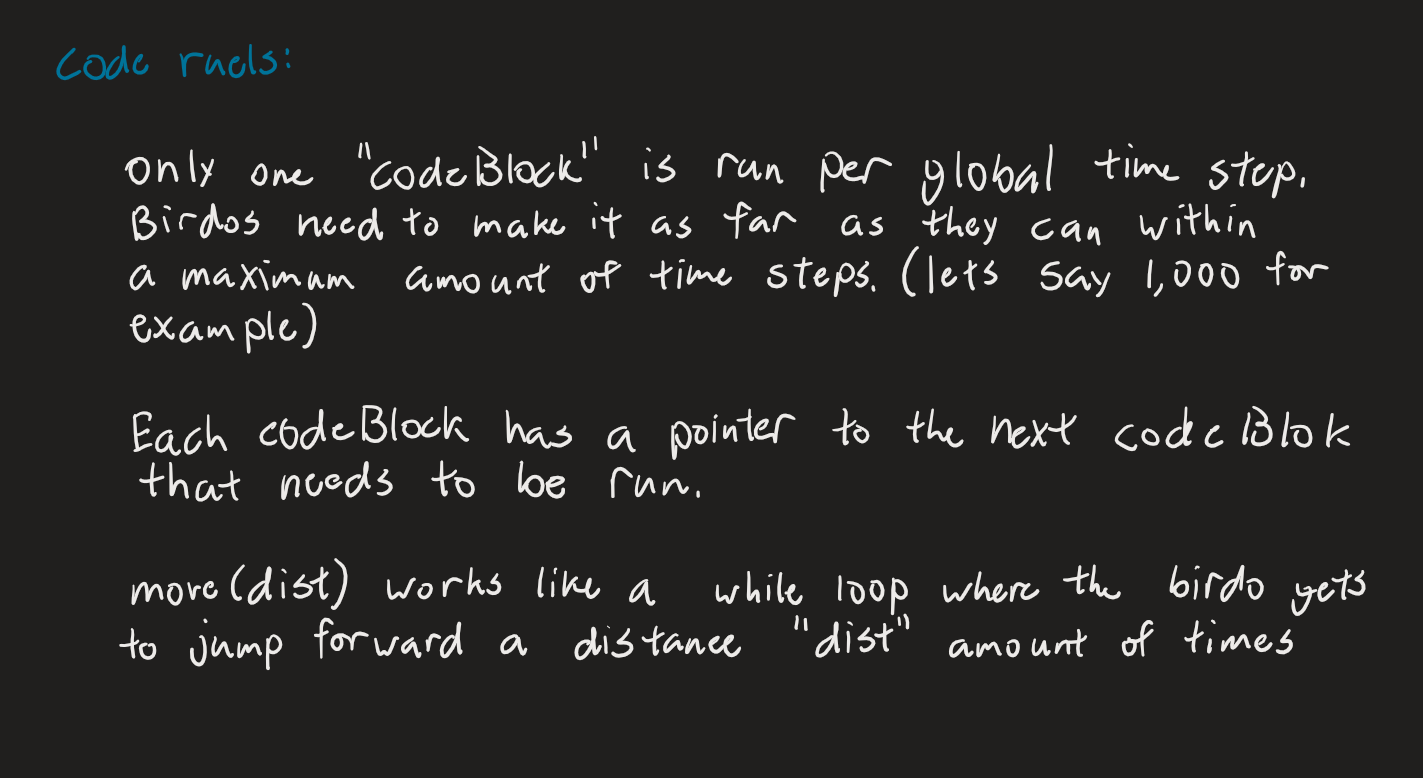 Code ruels:
only one "codeBlock" is run per global time step.
Birdos need to make it as far as they can within
a maximum amount of time steps. (lets say 1,000 for
example)
Each codeBlock has a pointer to the next codeBlok
that needs to be run.
move(dist) works like a while loop where the birdo gets
to jump forward a distance "dist" amount of times